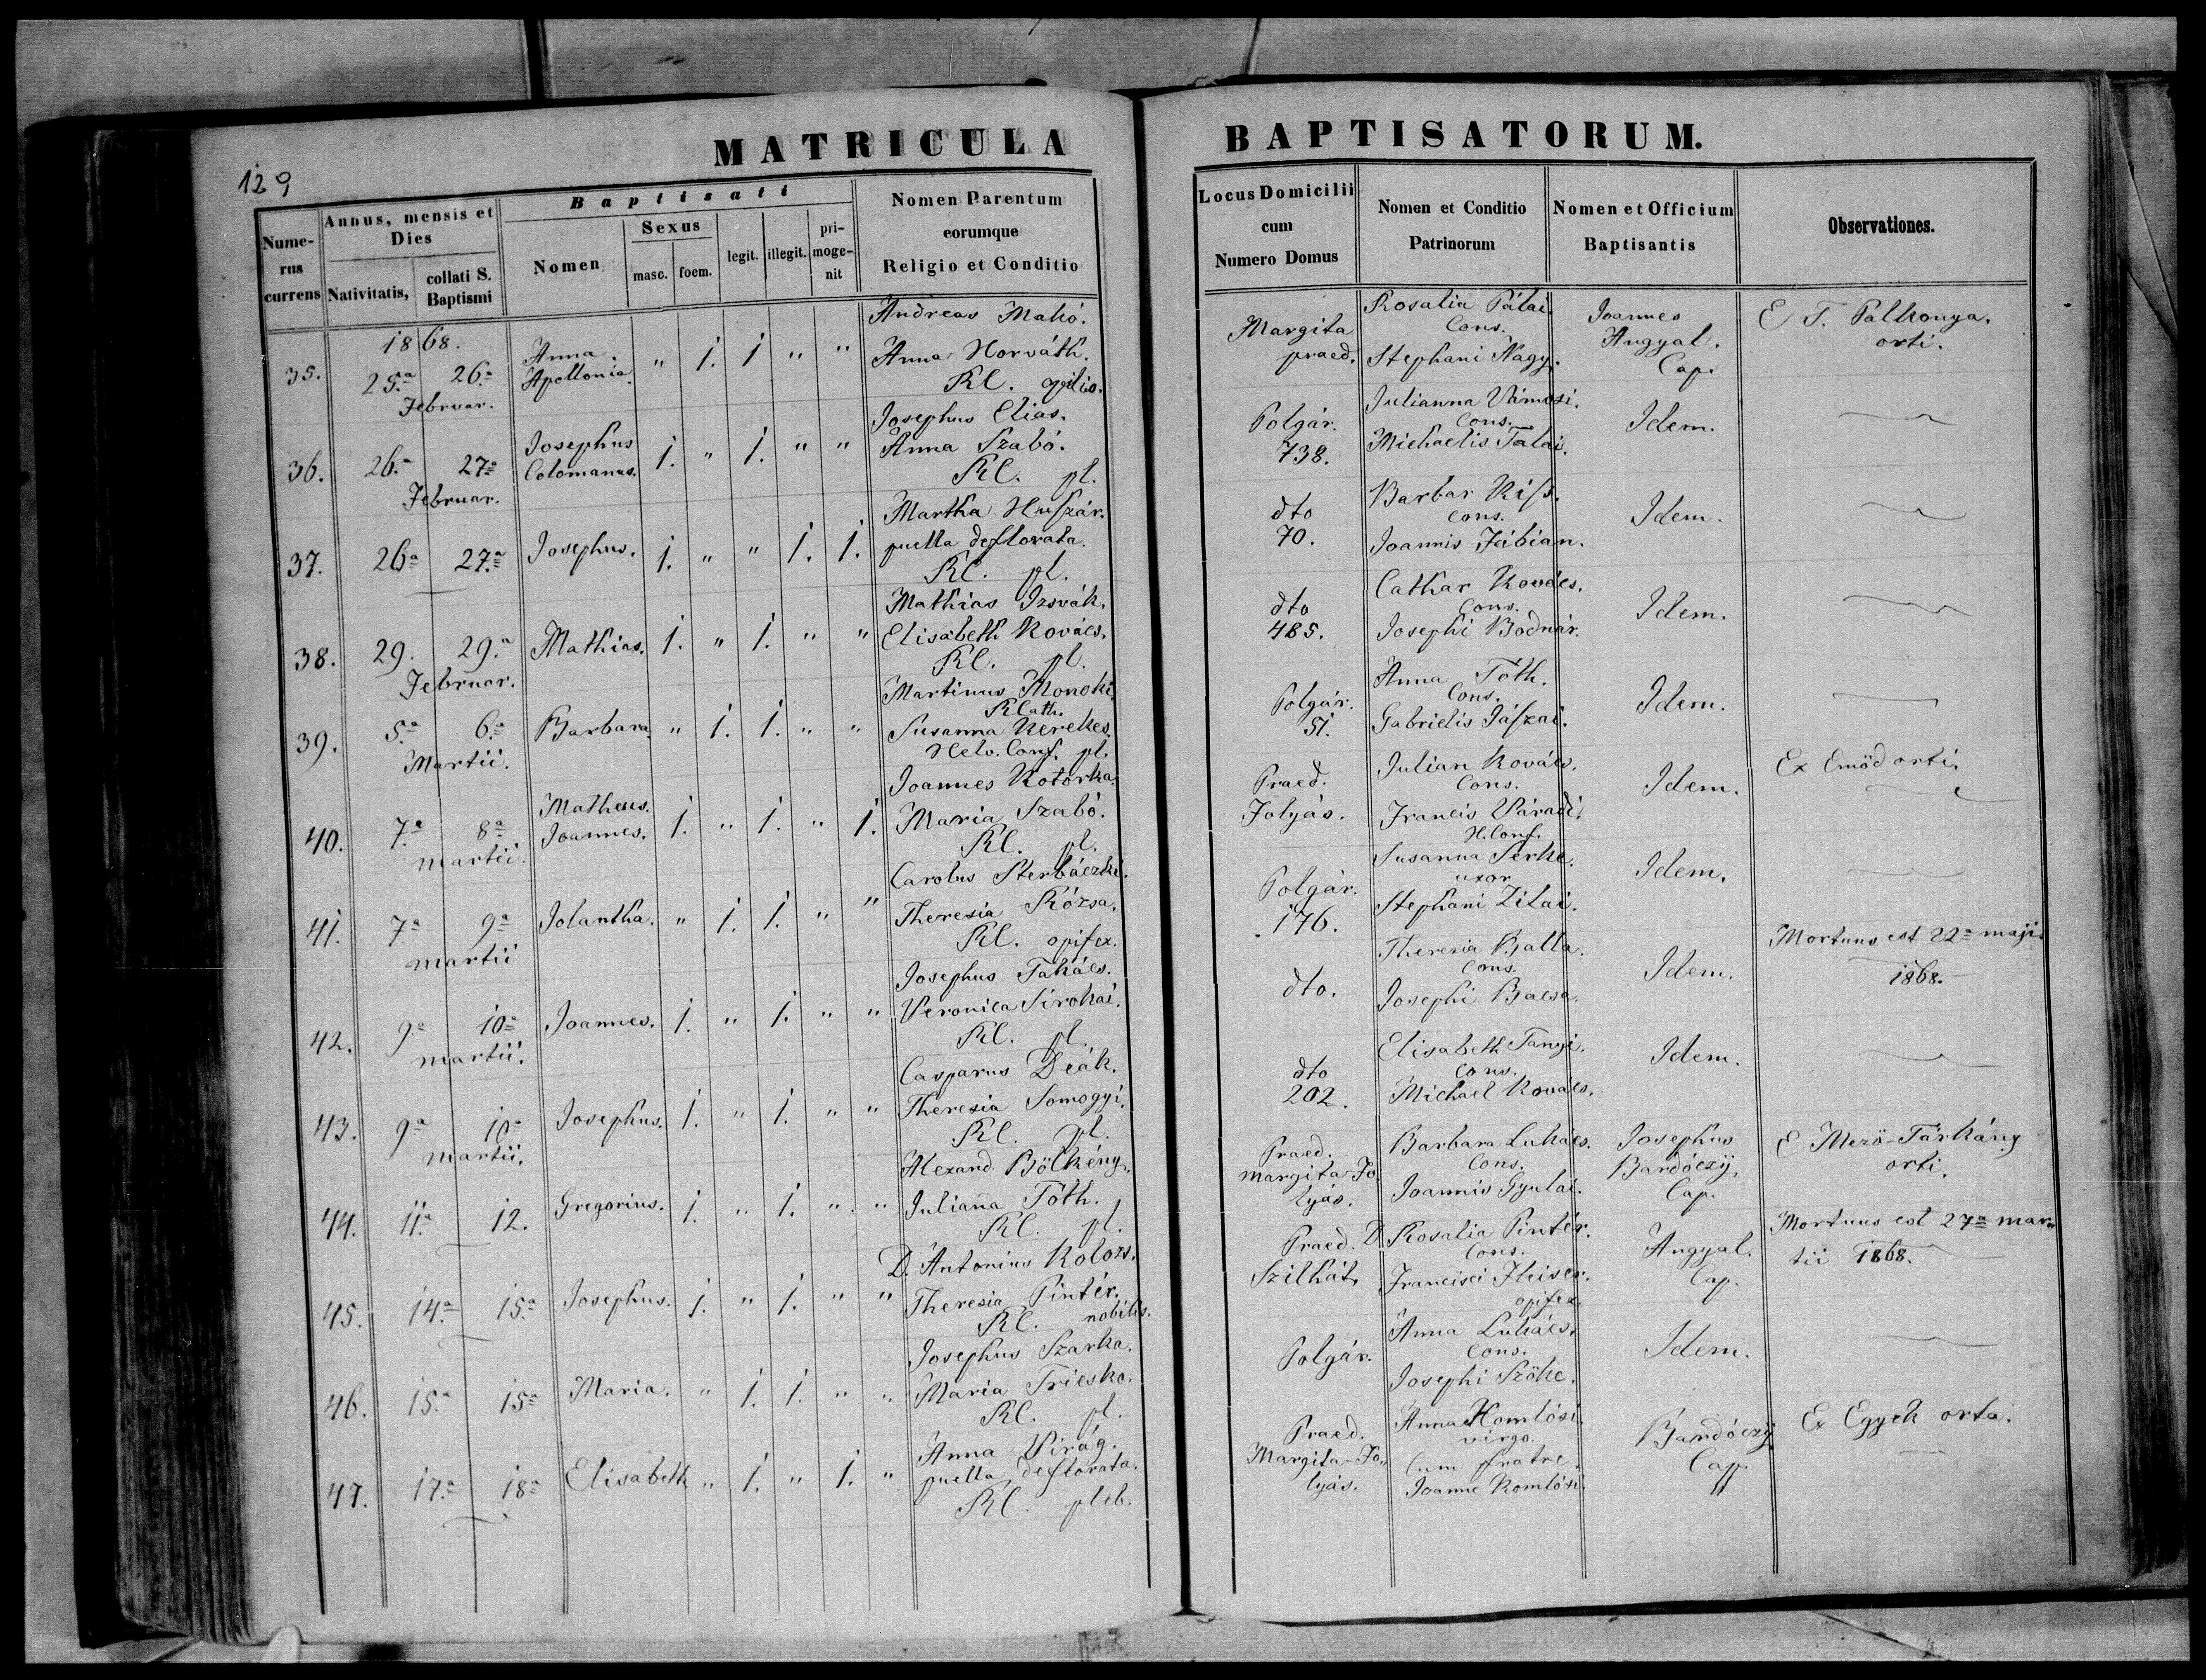 MATRICULA BAPTISATORUM.
129
Numerus currens
Annus, mensis et Dies
Nativitatis, collati S. Baptismi
Baptisati
Nomen
Sexus
masc. foem.
legit. illegit. primogenit
Nomen Parentum eorumque Religio et Conditio
Locus Domicilii cum Numero Domus
Nomen et Conditio Patrinorum
Nomen et Officium Baptisantis
Observationes.
1868.
35. 25.a 26.a
Februar.
Anna.
Apollonia.
" 1. 1 " "
Andreas Makó.
Anna Horváth.
RC. opilio.
Margita
praed.
Rosalia Pálai.
Cons.
Stephani Nagy.
Joannes
Angyal.
Cap.
E T. Palkonya.
orti.
36. 26.a 27.a
Februar.
Josephus
Colomanus.
1. " 1. " "
Josephus Elias.
Anna Szabó.
RC. pl.
Polgár.
738.
Julianna Vámosi.
Cons.
Michaelis Tálai.
Idem.
37. 26a 27.a
Josephus.
1. " " 1. 1.
Martha Huszár.
puella deflorata.
RC. pl.
dto
70.
Barbar Kiss.
cons.
Joannis Fábián.
Idem.
38. 29. 29.a
Februar.
Mathias.
1. " 1. " "
Mathias Izsvák.
Elisabeth Kovács.
RC. pl.
dto
485.
Cathar Kovács.
Cons.
Josephi Bodnár.
Idem.
39. 5.a 6.a
Martii.
Barbara.
" 1. 1. " "
Martinus Monoki.
RCath.
Susanna Kerekes.
Helv. Conf. pl.
Polgár.
51.
Anna Tóth.
Cons.
Gabrielis Jászai.
Idem.
40. 7.a 8a
martii.
Matheus.
Joannes.
1. " 1. " 1.
Joannes Kotorka.
Maria Szabó.
RC. pl.
Praed.
Folyás.
Julian Kovács.
Cons.
Francis Váradi.
H. Conf.
Idem.
Ex Emöd orti.
41. 7.a 9a
martii
Jolantha.
" 1. 1. " "
Carolus Sterbáczki.
Theresia Rózsa.
RC. opifex.
Polgár.
176.
Susanna Serke.
uxor
Stephani Zilai.
Idem.
42. 9.a 10a
martii.
Joannes.
1. " 1. " "
Josephus Takács.
Veronica Sirokai.
RC. pl.
dto.
Theresia Balla.
Cons.
Josephi Bacsa.
Idem.
Mortuus est 22a maji.
1868.
43. 9a 10a
martii.
Josephus.
1. " 1. " "
Casparus Deák.
Theresia Somogyi.
RC. pl.
dto
202.
Elisabeth Tanyi.
cons.
Michael Kovács.
Idem.
44. 11.a 12.
Gregorius.
1. " 1. " "
Alexand. Bölkény.
Julianna Tóth.
RC. pl.
Praed.
margita-Fo
lyás.
Barbara Lukács.
Cons.
Joannis Gyulai.
Josephus
Bardóczÿ.
Cap.
E Mezö-Tárkány
orti.
45. 14.a 15.a
Josephus.
1. " 1. " "
D. Antonius Kolozs.
Theresia Pintér.
RC. nobilis.
Praed.
Szilhát.
D. Rosalia Pintér.
Cons.
Francisci Fleiser.
opifex.
Angyal.
Cap.
Mortuus est 27a mar
tii 1868.
46. 15.a 15a
Maria.
" 1. 1. " "
Josephus Szarka.
Maria Triesko.
RC. pl.
Polgár.
Anna Lukács.
Cons.
Josephi Szöke.
Idem.
47. 17.a 18a
Elisabeth
" 1. " 1. "
Anna Virág.
puella deflorata.
RC. pleb.
Praed.
Margita-Fo
lyás.
Anna Komlósi.
virgo.
Cum fratre.
Joanne Komlósi.
Bardóczÿ
Cap.
Ex Egyek orta.